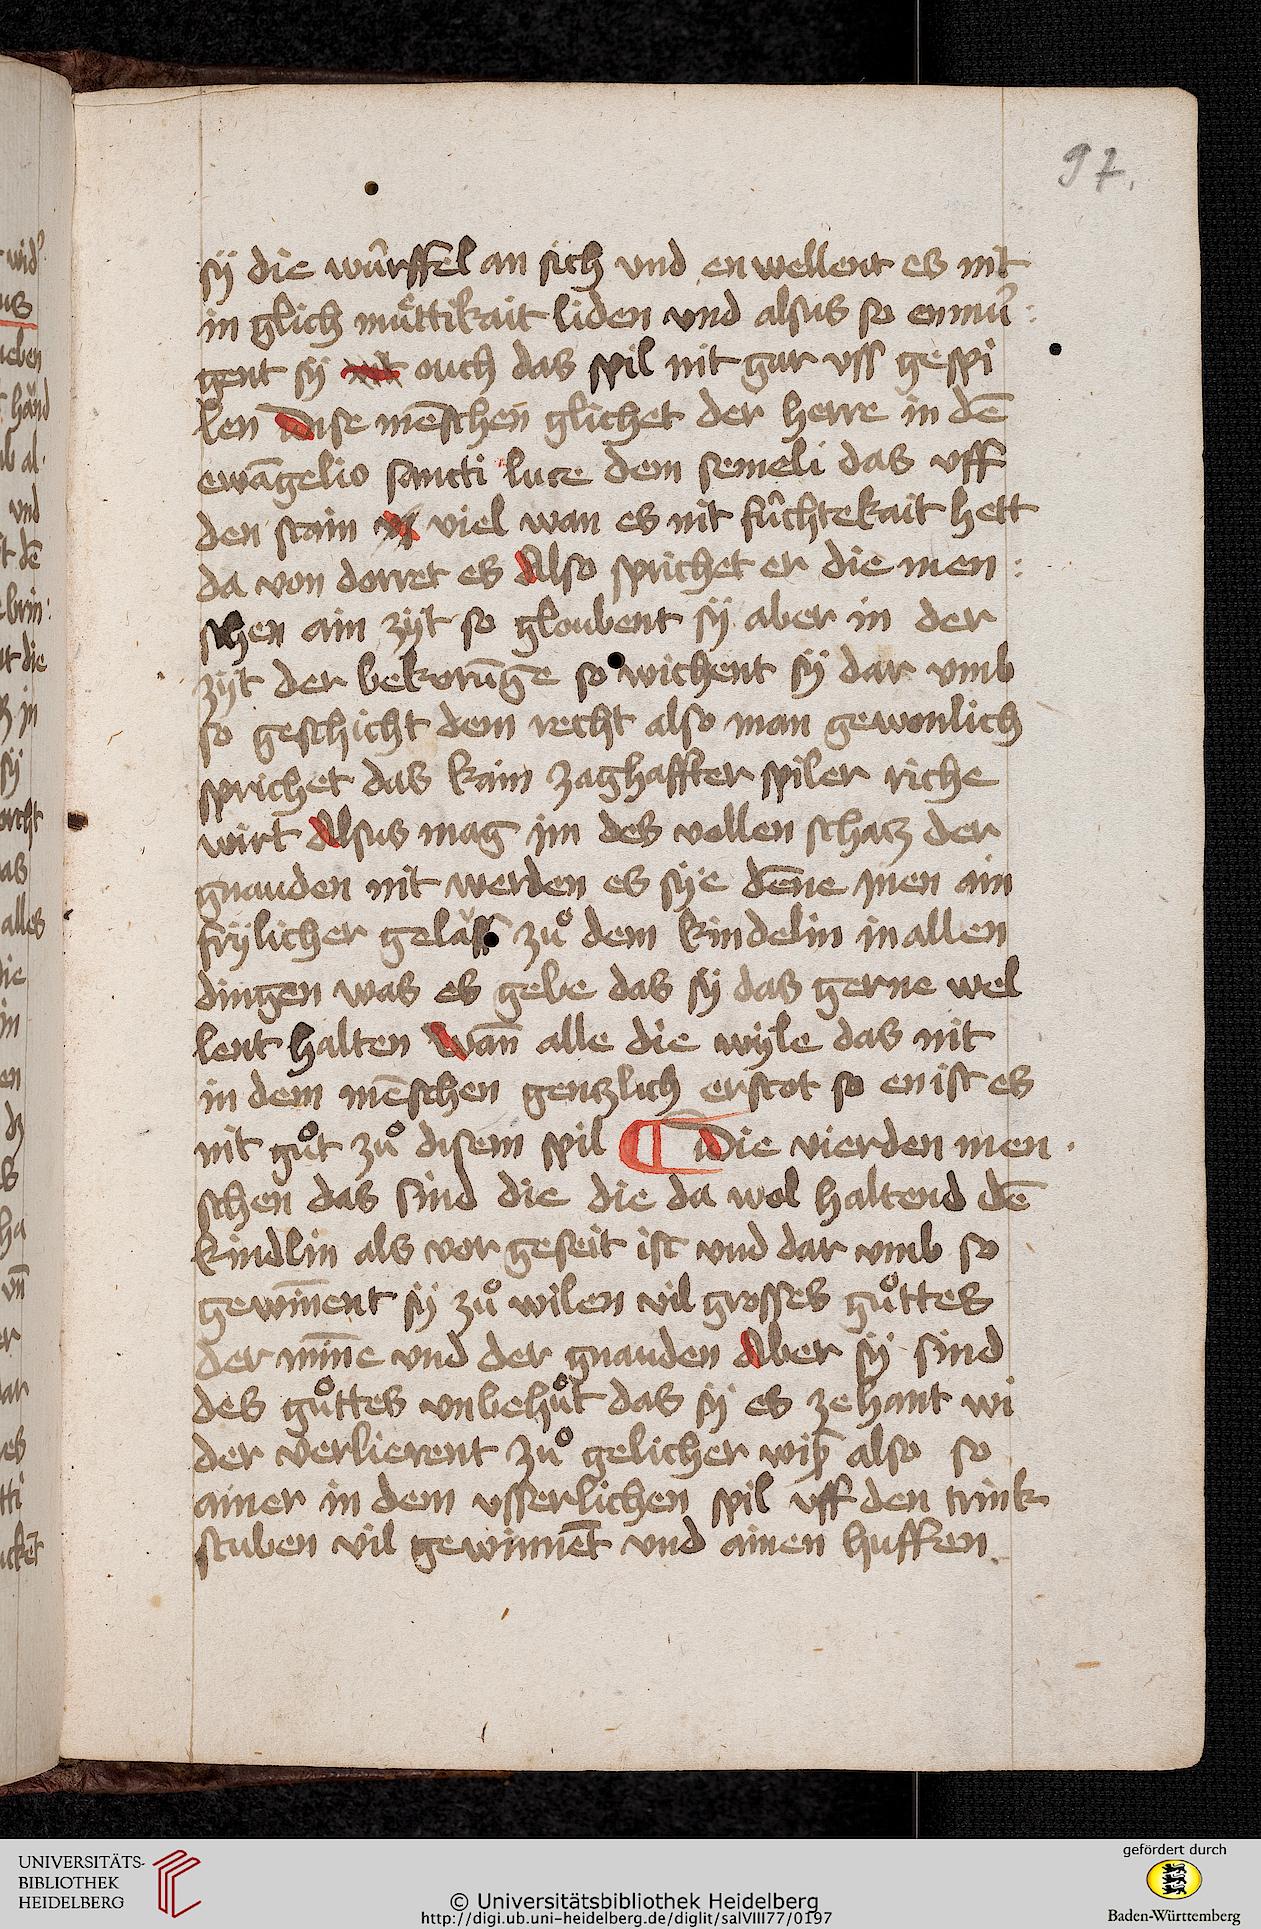 97.
sÿ die wûrffel an sich vnd enwellent es nit
in glich müͤttikait liden vnd alsus so enmuͤ:
gent sÿ ouch das spil nit gar vss gespi
len Dise mēschen glichet der herre in dē
ewāgelio sancti luce dem semeli das vff
den stain viel wan es nit fûchtekait hett
da von dorret es Also sprichet er die men:
schen ain zÿt so gloubent sÿ aber in der
zÿt der bekorūge so wichent sÿ dar vmb
so geschicht dem recht also man gewonlich
sprichet das kain zaghaffter spiler riche
wirt Alsus mag im des vollen schatz der
gnauden nit werden es sÿe dēne inen ain
frÿlicher geläss zuͦ dem kindelin in allen
dingen was es gebe das sÿ das gerne wel
lent halten Wan̄ alle die wÿle das nit
in dem mēschen gentzlich erstot so enist es
nit guͦt zuͦ disem spil ¶ Die vierden men
schen das sind die die da wol haltend dē
kindlin als vor geseit ist vnd dar vmb so
gewīnent sÿ zuͦ wilen vil grosses guͦttes
der mīne vnd der gnauden Aber sÿ sind
des guͦttes vnbehuͦt das sÿ es zehant wi
der verlierent zuͦ gelicher wiß also so
ainer in dem vsserlichen spil vff den trink
stuben vil gewinnēt vnd ainen huffen
UNIVERSITÄTS-
BIBLIOTHEK
HEIDELBERG
© Universitätsbibliothek Heidelberg
http://digi.ub.uni-heidelberg.de/diglit/salVIII77/0197
gefördert durch
Baden-Württemberg